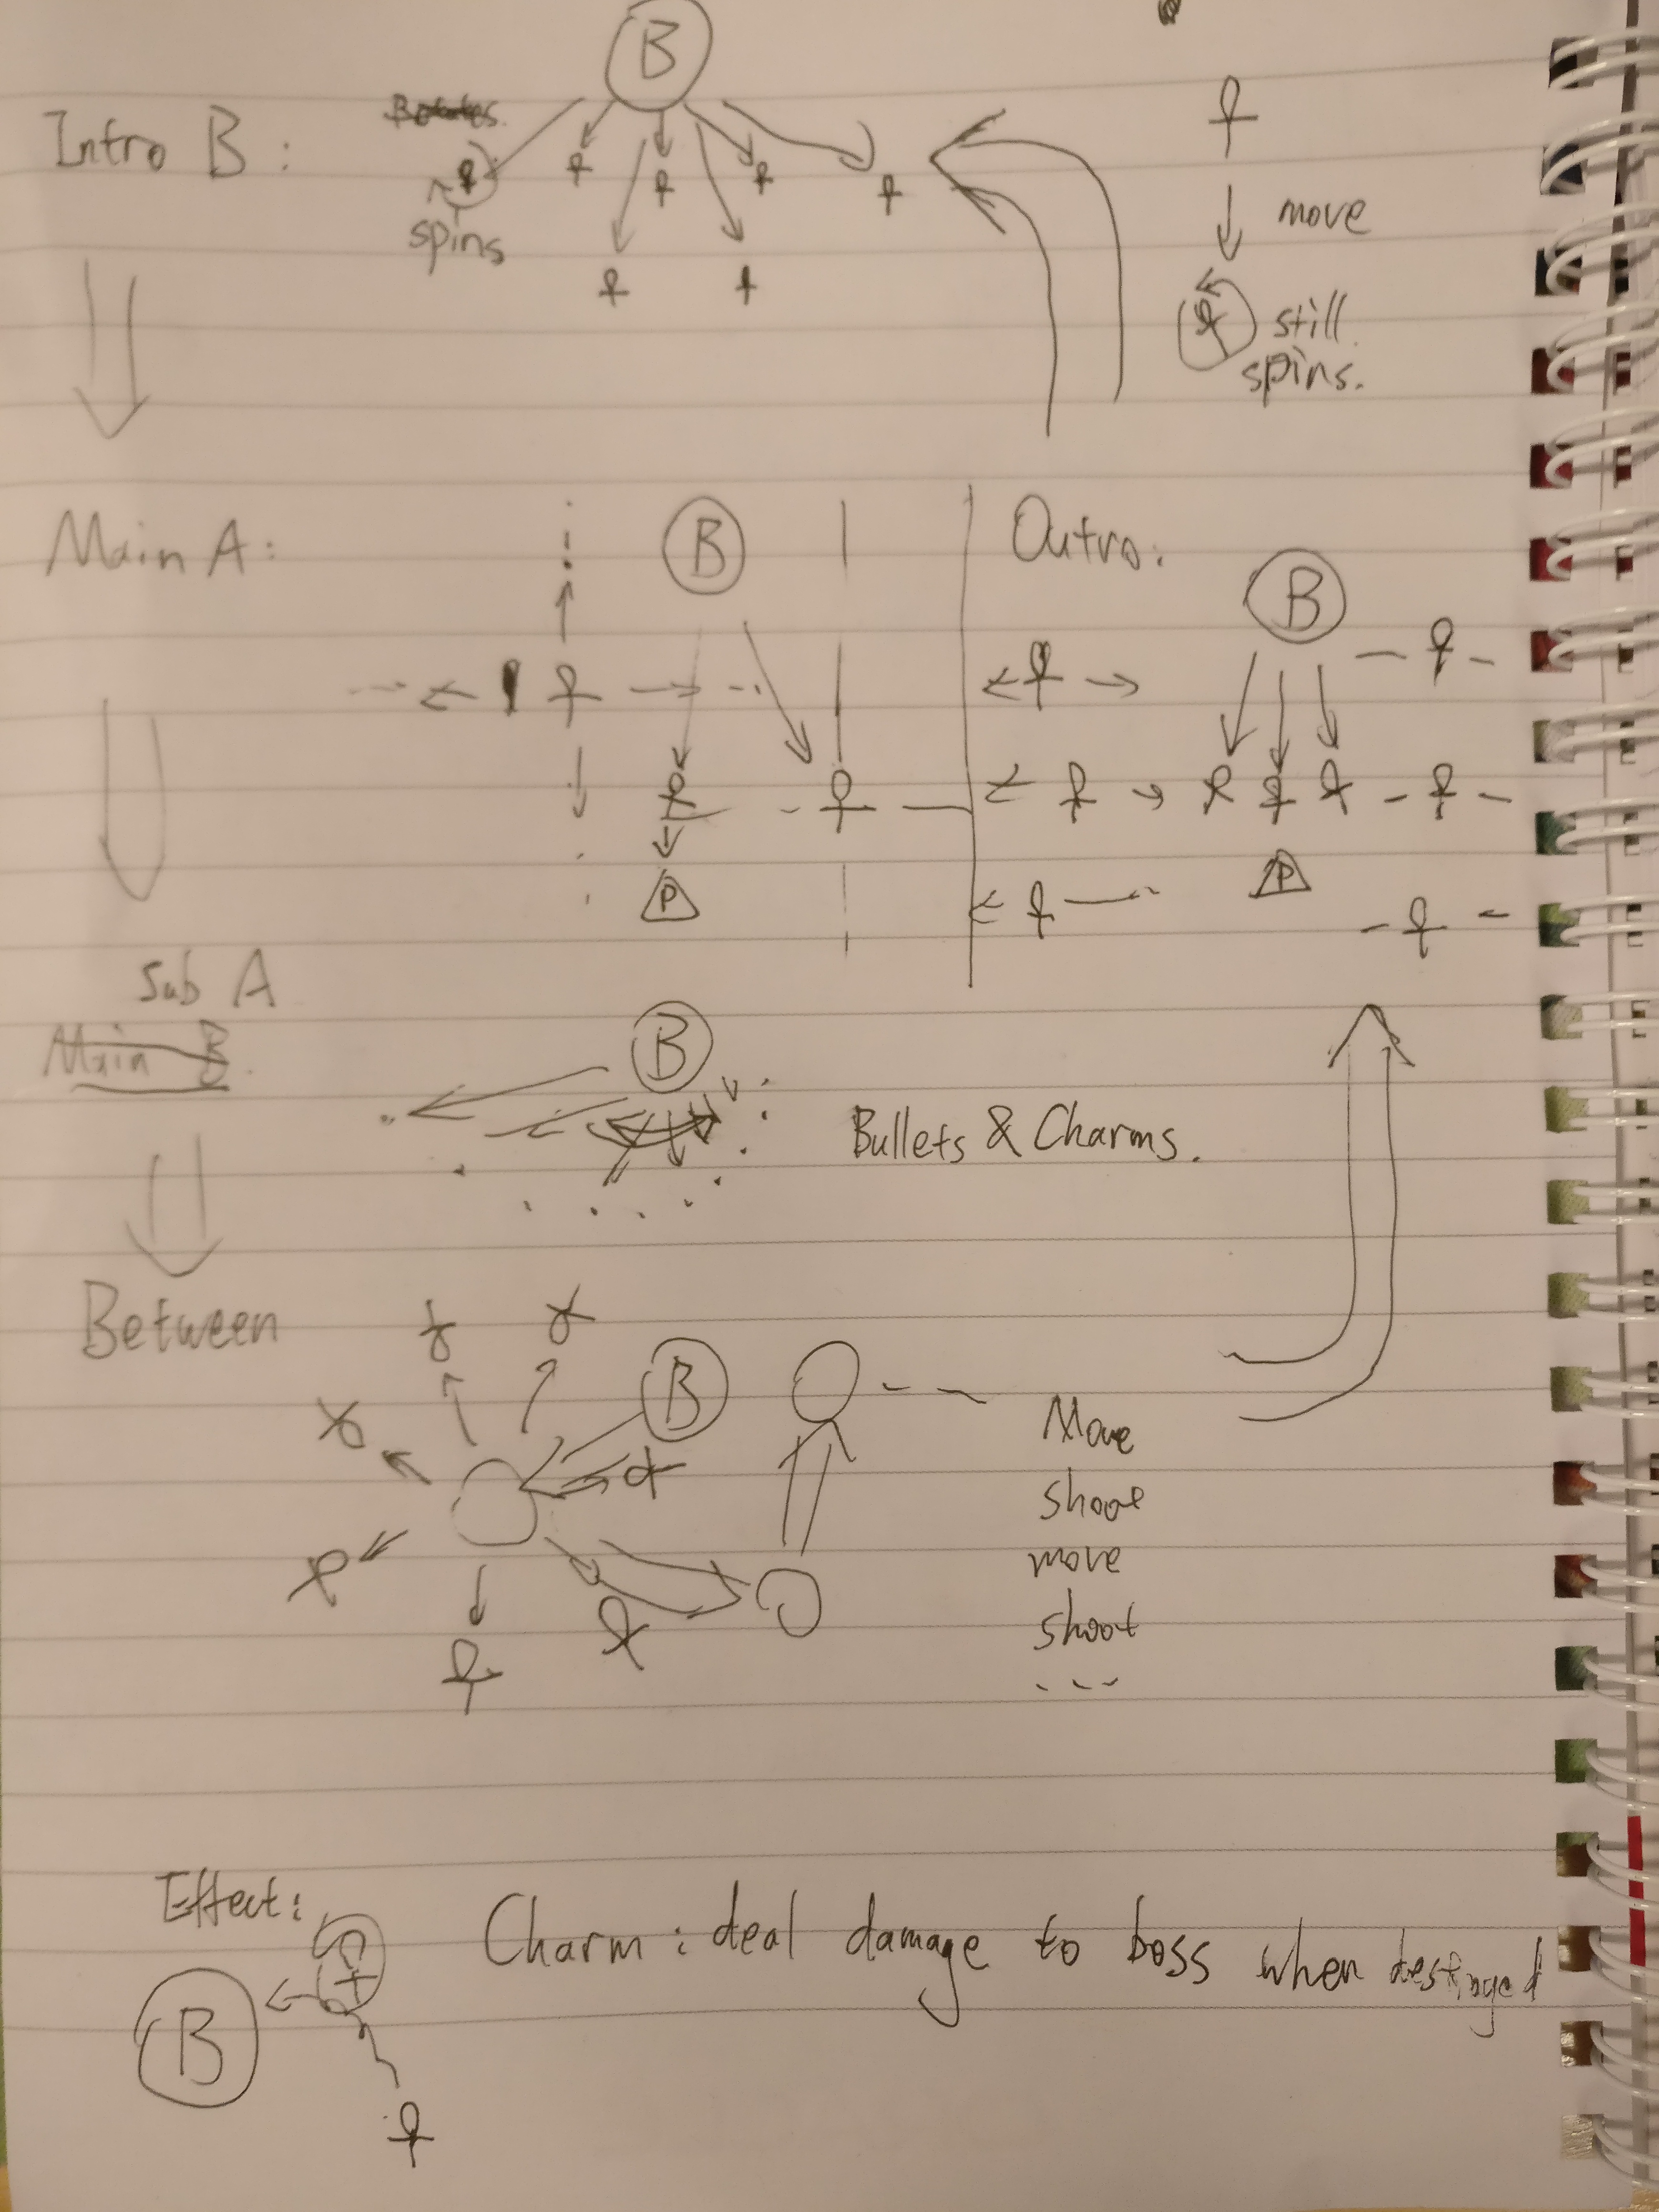 B
Intro B :
spins
move
still
spins.
Main A :
B
Outro :
B
P
P
Sub A
Main B.
B
Bullets & Charms.
Between
B
Move
shoot
move
shoot
---
Effect :
Charm : deal damage to boss when destroyed
B